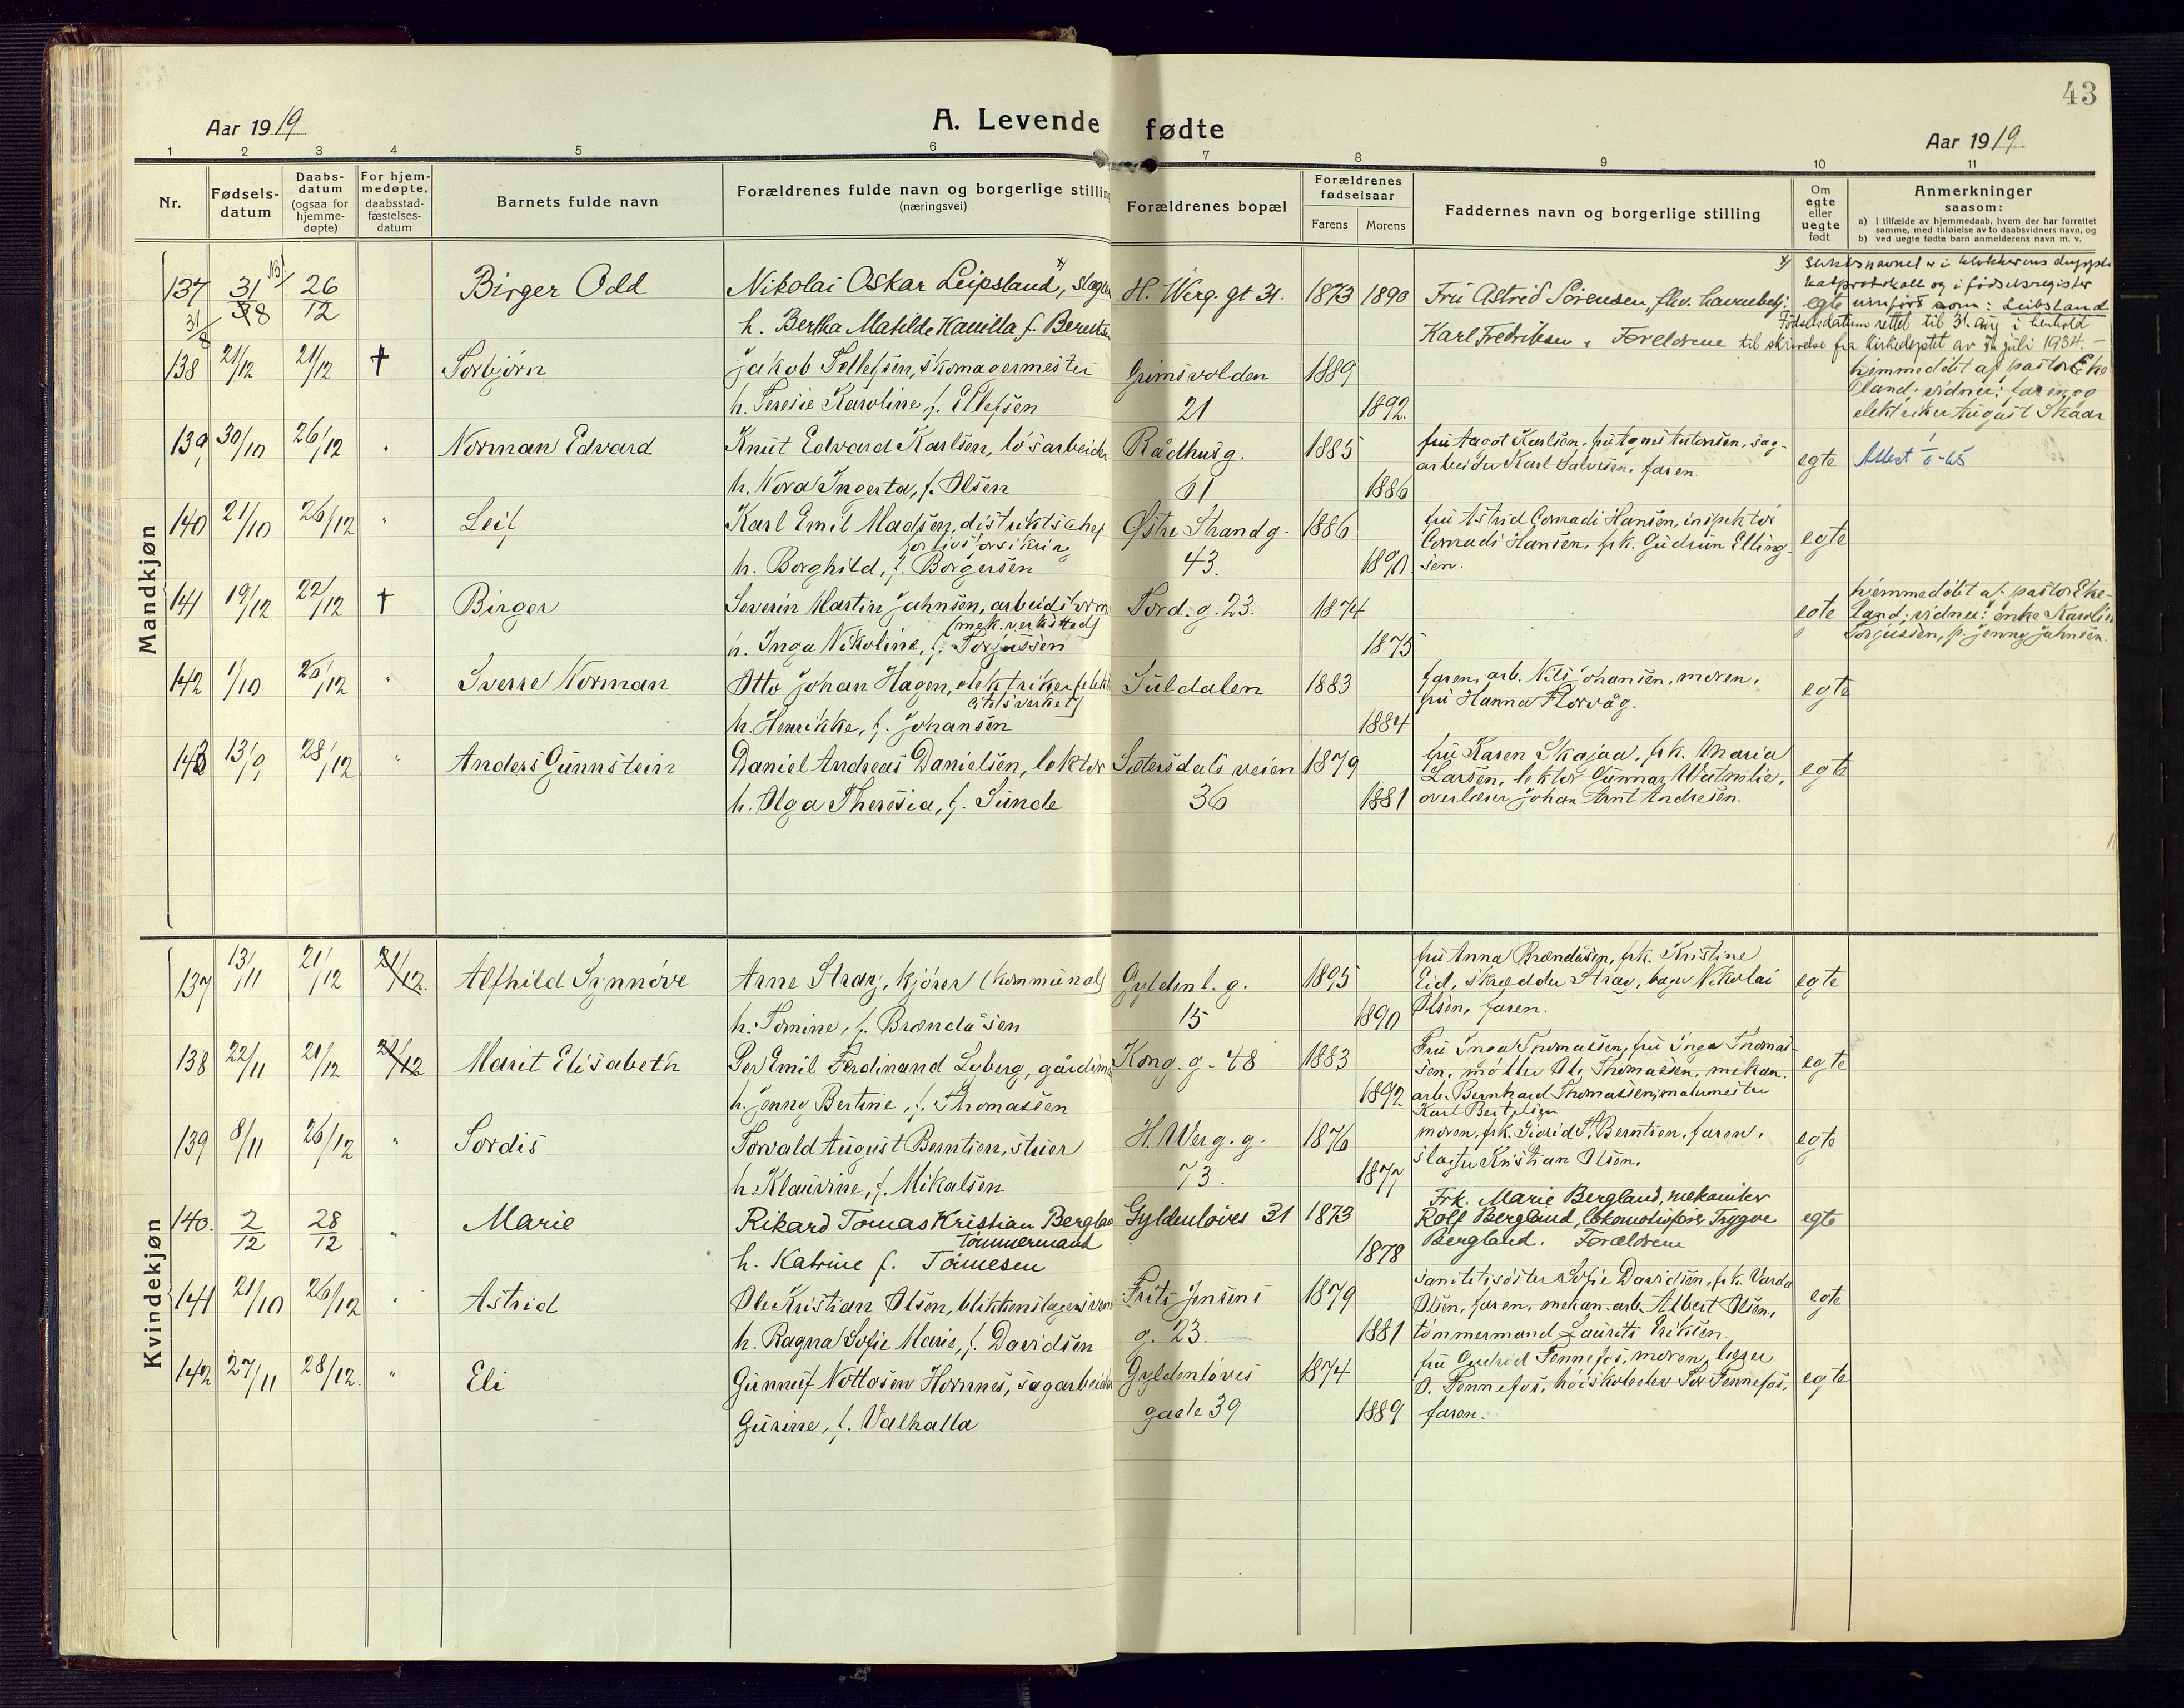 43
Aar 1919
A. Levende fødte
Aar 1919
1 2 3 4 5 6 7 8 9 10 11
Nr.
Fødsels-
datum
Daabs-
datum
(ogsaa for
hjemme-
døpte)
For hjem-
medøpte,
daabsstad-
fæstelses-
datum
Barnets fulde navn
Forældrenes fulde navn og borgerlige stilling
(næringsvei)
Forældrenes bopæl
Forældrenes
fødselsaar
Farens Morens
Faddernes navn og borgerlige stilling
Om
egte
eller
uegte
født
Anmerkninger
saasom:
a) i tilfælde av hjemmedaab, hvem der har forrettet
samme, med tilføielse av to daabsvidners navn, og
b) ved uegte fødte barn anmelderens navn m. v.
Mandkjøn
137 31/8 26/12 Birger Odd Nikolai Oskar Leipsland x), slagter H. Werg. gt 31. 1873 1890 Fru Astrid Sørensen, egte
31/8
h. Bertha Matilde Kamilla f. Berntsen
Karl Fredriksen, Forældrene
x) Slektsnavnet er i klokkerens dupli-
katprotokoll og i fødselsregister
innført som: Leibsland
Fødselsdatum rettet til 31. aug i henhold
til skrivelse fra kirkedeptet av juli 1934.
138 21/12 21/12 † Torbjørn Jakob Tellefsen, skomagermester Grimsvolden 1889
h. Teresie Karoline, f. Ellefsen 21 1892.
hjemmedøbt af pastor Eke
land; vidner: faren og
elektriker August Skaar
139 30/10 26/12 " Norman Edvard Knut Edvard Karlsen, løsarbeider Rådhusg. 1885 fru Aagot Karlsen, fru Agnes Antonsen, sag-
arbeider Karl Salvesen, faren. egte Attest
h. Nora Ingerta, f. Olsen 61 1886
140 21/10 26/12 " Leif Karl Emil Madsen, distriktschef Østre Strandg. 1886 fru Astrid Conradi Hansen, inspektør
for livsforsikring Conradi Hansen, frk. Gudrun Elling- egte
h. Borghild, f. Borgersen 43. 1890. sen.
141 19/12 22/12 † Birger Severin Martin Jahnsen, arbeidsform Tord. g. 23. 1874 egte
(mek. verksted)
h. Inga Nikoline, f. Torjussen 1875
hjemmedøbt af pastor Eke-
land; vidner: enke Karolin
Torjussen, f. Jenny Jahnsen.
142 1/10 26/12 " Sverre Norman Otto Johan Hagen, elektriker (elektri Suldalen 1883 faren, arb. Nils Johansen, moren, egte
citetsverket) fru Hanna Florvåg.
h. Henrikke, f. Johansen 1884
143 13/9 28/12 " Anders Gunnstein Daniel Andreas Danielsen, lektor Sætersdalsveien 1879 fru Karen Skajaa, frk. Maria
Larsen, lektor Gunnar Watnelie, egte
h. Olga Theresia, f. Sunde 36 1881 overlærer Johan Arnt Andresen.
Kvindekjøn
137 13/11 21/12 21/12. Alfhild Synnøve Arne Stray, kjører (kommunal) Gyldenl. g. 1895 fru Anna Brændåsen, frk. Kristine
Eid, skrædder Stray, bager Nikolai egte
h. Tomine, f. Brændåsen 15 1890 Olsen, faren.
138 22/11 21/12 21/12 Marit Elisabeth Per Emil Ferdinand Lyberg, gårdm Kong. g. 48 1883 Fru Inga Thomassen, fru Inga Thomas-
sen, møller Ole Thomassen, mekan. egte
h. Jenny Bertine, f. Thomassen 1892 arb. Bernhard Thomassen, malermester
Karl Bertelsen
139 8/11 26/12 " Tordis Torvald August Berntsen, stuer H. Werg. g. 1876 moren, frk. Sigrid A. Berntsen, faren, egte
slagter Kristian Olsen.
h. Klaurine, f. Mikalsen 73. 1877
140. 2/12 28/12 " Marie Rikard Tomas Kristian Bergland Gyldenløves 31 1873 Frk. Marie Bergland, mekaniker
tømmermand Rolf Bergland, lokomotivfører Trygve egte
h. Katrine f. Tønnesen 1878 Bergland. Forældrene
141 21/10 26/12 " Astrid Ole Kristian Olsen, blikkenslagersvend Frits Jensens 1879 sanitetssøster Sofie Davidsen, frk. Varda
Olsen, faren, mekan. arb. Albert Olsen, egte
h. Ragna Sofie Marie, f. Davidsen g. 23. 1881 tømmermand Laurits Eriksen.
142 27/11 28/12. " Eli Gunnuf Nottosen Hornnes, sagarbeider Gyldenløves 1874 fru Gudrid Fennefos, moren, læger
O. Fennefos, høiskoleelev Tor Fennefos, egte
Gurine, f. Valhalla gade 39 1889 faren.